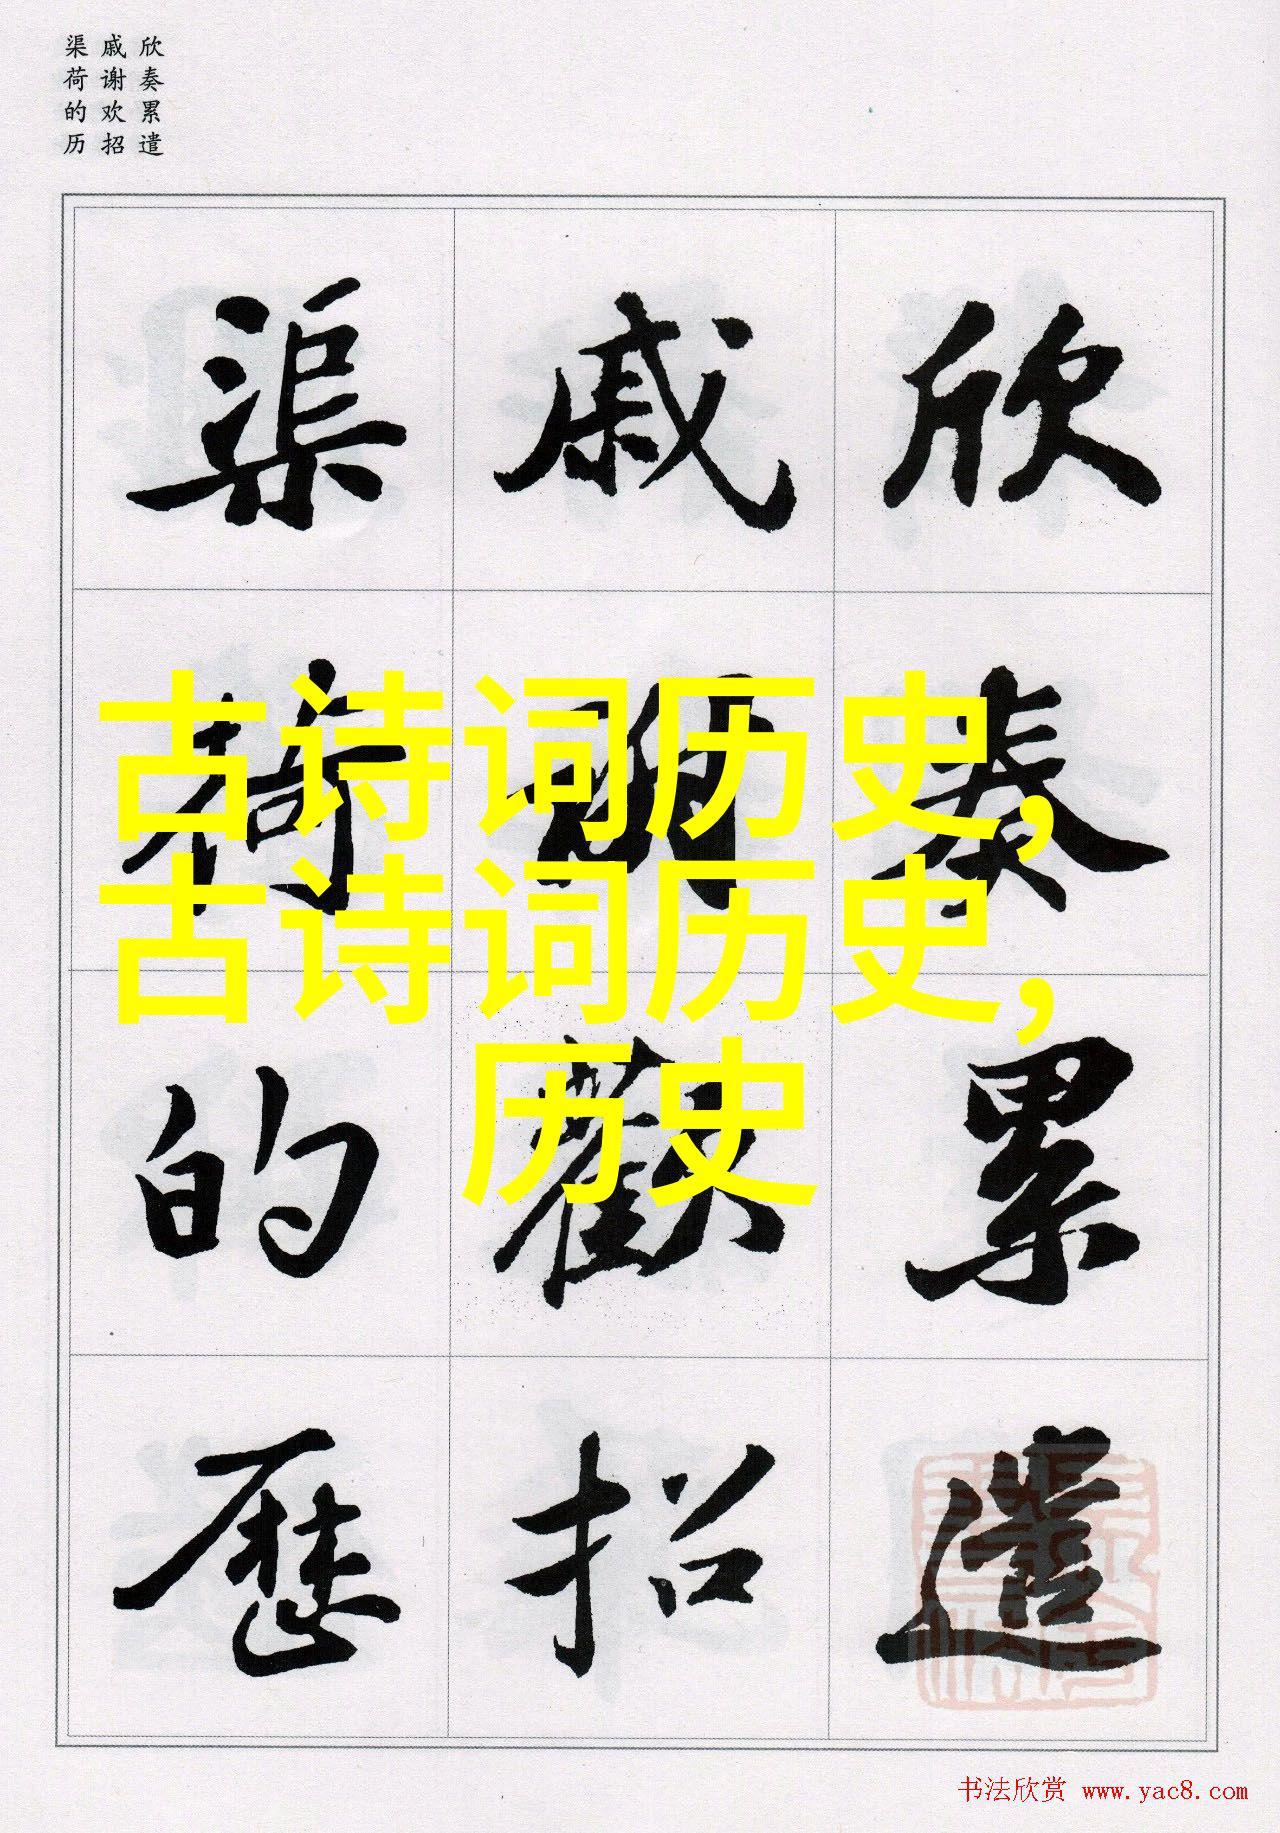 欣奏累遣
戚谢欢招
渠荷的历
欣奏累遣
戚謝歡招
渠荷的歷
古诗词历史,
古诗词历史,
历史
书法欣赏 www.yac8.com